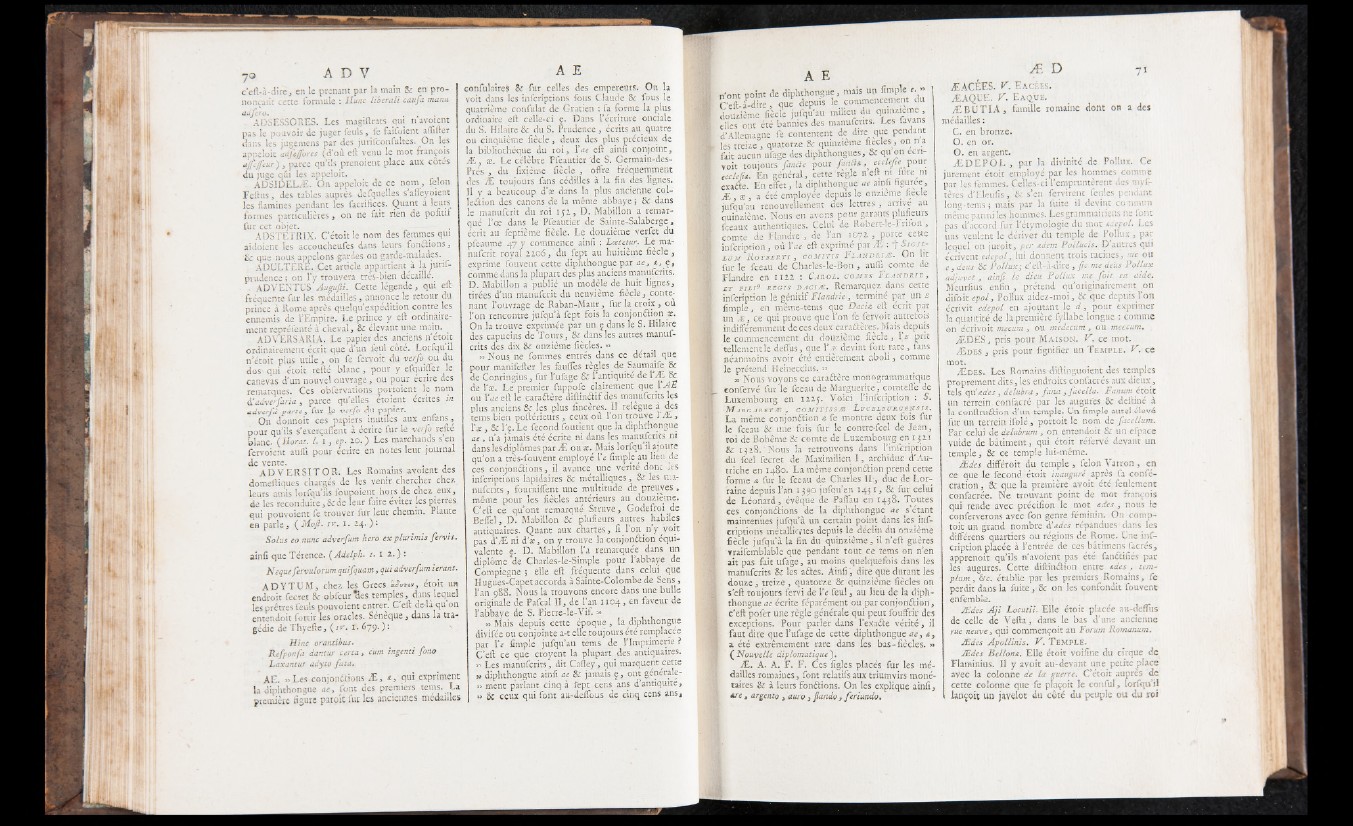 70 A D V
A E
c'est-à-dire, en le prenant par la main & en pro-
nonçant cette formule : Hunc liberali causa manu
assero.
ADSESSORES. Les magistrats qui n'avoient
pas le pouvoir de juger seuls, se faisoient assister
dans les jugemens par des jurisconsultes. On les
appeloit adsessores (d'où est venu le mot françois
assesseur), parce qu'ils prenoient place aux côtés
du juge qui les appeloit.
ADSIDELÆ. On appeloit de ce nom, selon
Festus, des tables auprès desquelles s'asseyoient
les flamines pendant les sacrifices. Quant à leurs
formes particulières, on ne sait rien de positif
sur cet objet.
ADSTETRIX. C'étoit le nom des femmes qui
aidoient les accoucheuses dans leurs fonctions,
& que nous appelons gardes ou garde-malades.
ADULTERE. Cet article appartient à la juris-
prudence ; on l'y trouvera très-bien détaillé.
ADVENTUS Augusti. Cette légende, qui est
fréquente sur les médailles, annonce le retour du
prince à Rome après quelqu'expédition contre les
ennemis de l'Empire. Le prince y est ordinaire-
ment représenté à cheval, & élevant une main.
ADVERSARIA. Le papier des anciens n'étoit
ordinairement écrit que d'un seul côté. Lorsqu'il
n'étoit plus utile, on se servoit du verso ou du
dos qui étoit resté blanc, pour y esquisser le
canevas d'un nouvel ouvrage, ou pour écrire des
remarques. Ces observations portoient le nom
d'adversaria, parce qu'elles étoient écrites in
adversâ parte, sur le verso du papier.
On donnoit ces papiers inutiles aux enfans,
pour qu'ils s'exerçassent à écrire sur le verso resté
blanc. (Horat. l. 1, ep. 20.) Les marchands s'en
servoient aussi pour écrire en notes leur journal
de vente.
ADVERSITOR. Les Romains avoient des
domestiques chargés de les venir chercher chez
leurs amis lorsqu'ils soupoient hors de chez eux,
de les reconduire, & de leur faire éviter les pierres
qui pouvoient se trouver sur leur chemin. Plaute
en parle, (Most. IV. 1. 24.) :
Solus eo nunc adversum hero ex plurimis servis.
ainsi que Térence. (Adelph. 1. 1 2.) :
Neque servulorum quisquam, qui adversum ierant.
ADYTUM, chez les Grecs, étoit un
endroit secret & obscur des temples, dans lequel
les prêtres seuls pouvoient entrer. C'est de-là qu'on
entendoit sortir les oracles. Sénèque, dans la tra-
gédie de Thyeste, (IV. 1. 679.) :
Hinc orantibus
Responsa dantur certa, cum ingenti sono
Laxantur adyto fata.
AE. » Les conjonctions Æ, æ, qui expriment
la diphthongue ae, sont des premiers tems. La
première figure paroît sur les anciennes médailles
consulaires & sur celles des empereurs. On la
voit dans les inscriptions sous Claude & sous le
quatrième consulat de Gratien : sa forme la plus
ordinaire est celle-ci ę. Dans l'écriture onciale
du S. Hilaire & du S. Prudence, écrits au quatre
ou cinquième siècle, deux des plus précieux de
la bibliothèque du roi, l'æ est ainsi conjoint,
Æ, æ. Le célèbre Pseautier de S. Germain-des-
Prés, du sixième siècle, offre fréquemment
des Æ toujours sans cédilles à la fin des lignes.
Il y a beaucoup d'æ dans la plus ancienne col-
lection des canons de la même abbaye ; & dans
le manuscrit du roi 152, D. Mabillon a remar-
qué l'œ dans le Pseautier de Sainte-Salaberge,
écrit au septième siècle. Le douzième verset du
pseaume 47 y commence ainsi : Lætetur. Le ma-
nuscrit royal 2206, du sept au huitième siècle,
exprime souvent cette diphthongue par ae, æ, ę,
comme dans la plupart des plus anciens manuscrits.
D. Mabillon a publié un modèle de huit lignes,
tirées d'un manuscrit du neuvième siècle, conte-
nant l'ouvrage de Raban-Maur, sur la croix, où
l'on rencontre jusqu'à sept fois la conjonction æ.
On la trouve exprimée par un ę dans le S. Hilaire
des capucins de Tours, & dans les autres manus-
crits des dix & onzième siècles. »
» Nous ne sommes entrés dans ce détail que
pour manifester les fausses règles de Saumaise &
de Conringius, sur l'usage & l'antiquité de l'Æ &
de l'æ. Le premier suppose clairement que l'AE
ou l'ae est le caractère distinctif des manuscrits les
plus anciens & les plus sincères. Il relègue à des
tems bien postérieurs, ceux où l'on trouve l'Æ,
l'æ, & l'ę. Le second soutient que la diphthongue
ae, n'a jamais été écrite ni dans les manuscrits ni
dans les diplômes par Æ ou æ. Mais lorsqu'il ajoute
qu'on a très-souvent employé l'e simple au lieu de
ces conjonctions, il avance une vérité dont les
inscriptions lapidaires & métalliques, & les ma-
nuscrits, fournissent une multitude de preuves,
même pour les siècles antérieurs au douzième.
C'est ce qu'ont remarqué Struve, Godefroi de
Bessel, D. Mabillon & plusieurs autres habiles
antiquaires. Quant aux chartes, si l'on n'y voit
pas d'Æ ni d'æ, on y trouve la conjonction équi-
valente ę. D. Mabillon l'a remarquée dans un
diplôme de Charles-le-Simple pour l'abbaye de
Compiegne ; elle est fréquente dans celui que
Hugues-Capet accorda à Sainte-Colombe de Sens,
l'an 988. Nous la trouvons encore dans une bulle
originale de Pascal II, de l'an 1104, en faveur de
l'abbaye de S. Pierre-le-Vif. »
» Mais depuis cette époque, la diphthongue
divisée ou conjointe a-t-elle toujours été remplacée
par l'e simple jusqu'au tems de l'Imprimerie ?
C'est ce que croyent la plupart des antiquaires.
» Les manuscrits, dit Casley, qui marquent cette
» diphthongue ainsi ae & jamais ę, ont générale-
» ment parlant cinq à sept cens ans d'antiquité,
» & ceux qui sont au-dessous de cinq cens ans,
A E
Æ D 71
n'ont point de diphthongue, mais un simple e. »
C'est-à-dire, que depuis le commencement du
douzième siècle jusqu'au milieu du quinzième,
elles ont été bannies des manuscrits. Les savans
d'Allemagne se contentent de dire que pendant
les treize, quatorze & quinzième siècles, on n'a
fait aucun usage des diphthongues, & qu'on écri-
voit toujours sancte pour sanctæ, ecclesie pour
ecclesiæ. En général, cette règle n'est ni sûre ni
exacte. En effet, la diphthongue ae ainsi figurée,
Æ, æ, a été employée depuis le onzième siècle
jusqu'au renouvellement des lettres, arrivé au
quinzième. Nous en avons pour garans plusieurs
sceaux authentiques. Celui de Robert-le-Frison,
comte de Flandre, de l'an 1072, porte cette
inscription, où l'æ est exprimé par Æ : † SIGIL-
LUM ROTBERTI, COMITIS FLANDRIÆ. On lit
sur le sceau de Charles-le-Bon, aussi comte de
Flandre en 1122 : CAROL. COMES FLANDRIE,
ET FILII REGIS DACIÆ. Remarquez dans cette
inscription le génitif Flandrie, terminé par un E
simple, en même-tems que Daciæ est écrit par
un Æ, ce qui prouve que l'on se servoit autrefois
indifféremment de ces deux caractères. Mais depuis
le commencement du douzième siècle, l'e prit
tellement le dessus, que l'æ devint fort rare, sans
néanmoins avoir été entièrement aboli, comme
le prétend Heineccius. »
» Nous voyons ce caractère monogrammatique
conservé sur le sceau de Marguerite, comtesse de
Luxembourg en 1225. Voici l'inscription : S.
MARGARETÆ, COMITISSÆ LUCELBURGENSIS.
La même conjonction æ se montre deux fois sur
le sceau & une fois sur le contre-scel de Jean,
roi de Bohême & comte de Luxembourg en 1321
& 1328. Nous la retrouvons dans l'inscription
du scel secret de Maximilien I, archiduc d'Au-
triche en 1480. La même conjonction prend cette
forme æ sur le sceau de Charles II, duc de Lor-
raine depuis l'an 1390 jusqu'en 1431, & sur celui
de Léonard, évêque de Passau en 1438. Toutes
ces conjonctions de la diphthongue ae s'étant
maintenues jusqu'à un certain point dans les ins-
criptions métalliques depuis le déclin du onzième
siècle jusqu'à la fin du quinzième, il n'est guères
vraisemblable que pendant tout ce tems on n'en
ait pas fait usage, au moins quelquefois dans les
manuscrits & les actes. Ainsi, dire que durant les
douze, treize, quatorze & quinzième siècles on
s'est toujours servi de l'e seul, au lieu de la diph-
thongue ae écrite séparément ou par conjonction,
c'est poser une règle générale qui peut souffrir des
exceptions. Pour parler dans l'exacte vérité, il
faut dire que l'usage de cette diphthongue ae, æ,
a été extrêmement rare dans les bas-siècles. »
(Nouvelle diplomatique).
Æ. A. A. F. F. Ces sigles placés sur les mé-
dailles romaines, sont relatifs aux triumvirs moné-
taires & à leurs fonctions. On les explique ainsi,
ære, argento, auro, flando, feriundo.
ÆACÉES. V. EACÉES.
ÆAQUE. V. EAQUE.
ÆBUTIA, famille romaine dont on a des
médailles :
C. en bronze.
O. en or.
O. en argent.
ÆDEPOL, par la divinité de Pollux. Ce
jurement étoit employé par les hommes comme
par les femmes. Celles-ci l'empruntèrent des mys-
tères d'Eleusis, & s'en servirent seules pendant
long-tems ; mais par la suite il devint commun
même parmi les hommes. Les grammairiens ne sont
pas d'accord sur l'étymologie du mot ædepol. Les
uns veulent le dériver du temple de Pollux, par
lequel on juroit, per ædem Pollucis. D'autres qui
écrivent edepol, lui donnent trois racines, me ou
e, deus & Pollux ; c'est-à-dire, sic me deus Pollux
adjuvet, ainsi le dieu Pollux me soit en aide.
Meursius enfin, prétend qu'originairement on
disoit epol, Pollux aidez-moi, & que depuis l'on
écrivit edepol en ajoutant le d, pour exprimer
la quantité de la première syllabe longue : comme
on écrivoit mecum, ou medecum, ou meecum.
ÆDES, pris pour MAISON. V. ce mot.
ÆDES, pris pour signifier un TEMPLE. V. ce
mot.
ÆDES. Les Romains distinguoient des temples
proprement dits, les endroits consacrés aux dieux,
tels qu'ædes, delubra, fana, sacella. Fanum étoit
un terrein consacré par les augures & destiné à
la construction d'un temple. Un simple autel élevé
sur un terrein isolé, portoit le nom de sacellum.
Par celui de delubrum, on entendoit & un espace
vuide de bâtiment, qui étoit réservé devant un
temple, & ce temple lui-même.
Ædes différoit du temple, selon Varron, en
ce que le second étoit inauguré après sa consé-
cration, & que la première avoit été seulement
consacrée. Ne trouvant point de mot françois
qui rende avec précision le mot ædes, nous le
conserverons avec son genre féminin. On comp-
toit un grand nombre d'ædes répandues dans les
différens quartiers ou régions de Rome. Une ins-
cription placée à l'entrée de ces bâtimens sacrés,
apprenoit qu'ils n'avoient pas été sanctifiés par
les augures. Cette distinction entre ædes, tem-
plum, &c. établie par les premiers Romains, se
perdit dans la suite, & on les confondit souvent
ensemble.
Ædes Aji Locutii. Elle étoit placée au-dessus
de celle de Vesta, dans le bas d'une ancienne
rue neuve, qui commençoit au Forum Romanum.
Ædes Apollinis. V. TEMPLE.
Ædes Bellonæ. Elle étoit voisine du cirque de
Flaminius. Il y avoit au-devant une petite place
avec la colonne de la guerre. C'étoit auprès de
cette colonne que se plaçoit le consul, lorsqu'il
lançoit un javelot du côté du peuple ou du roi